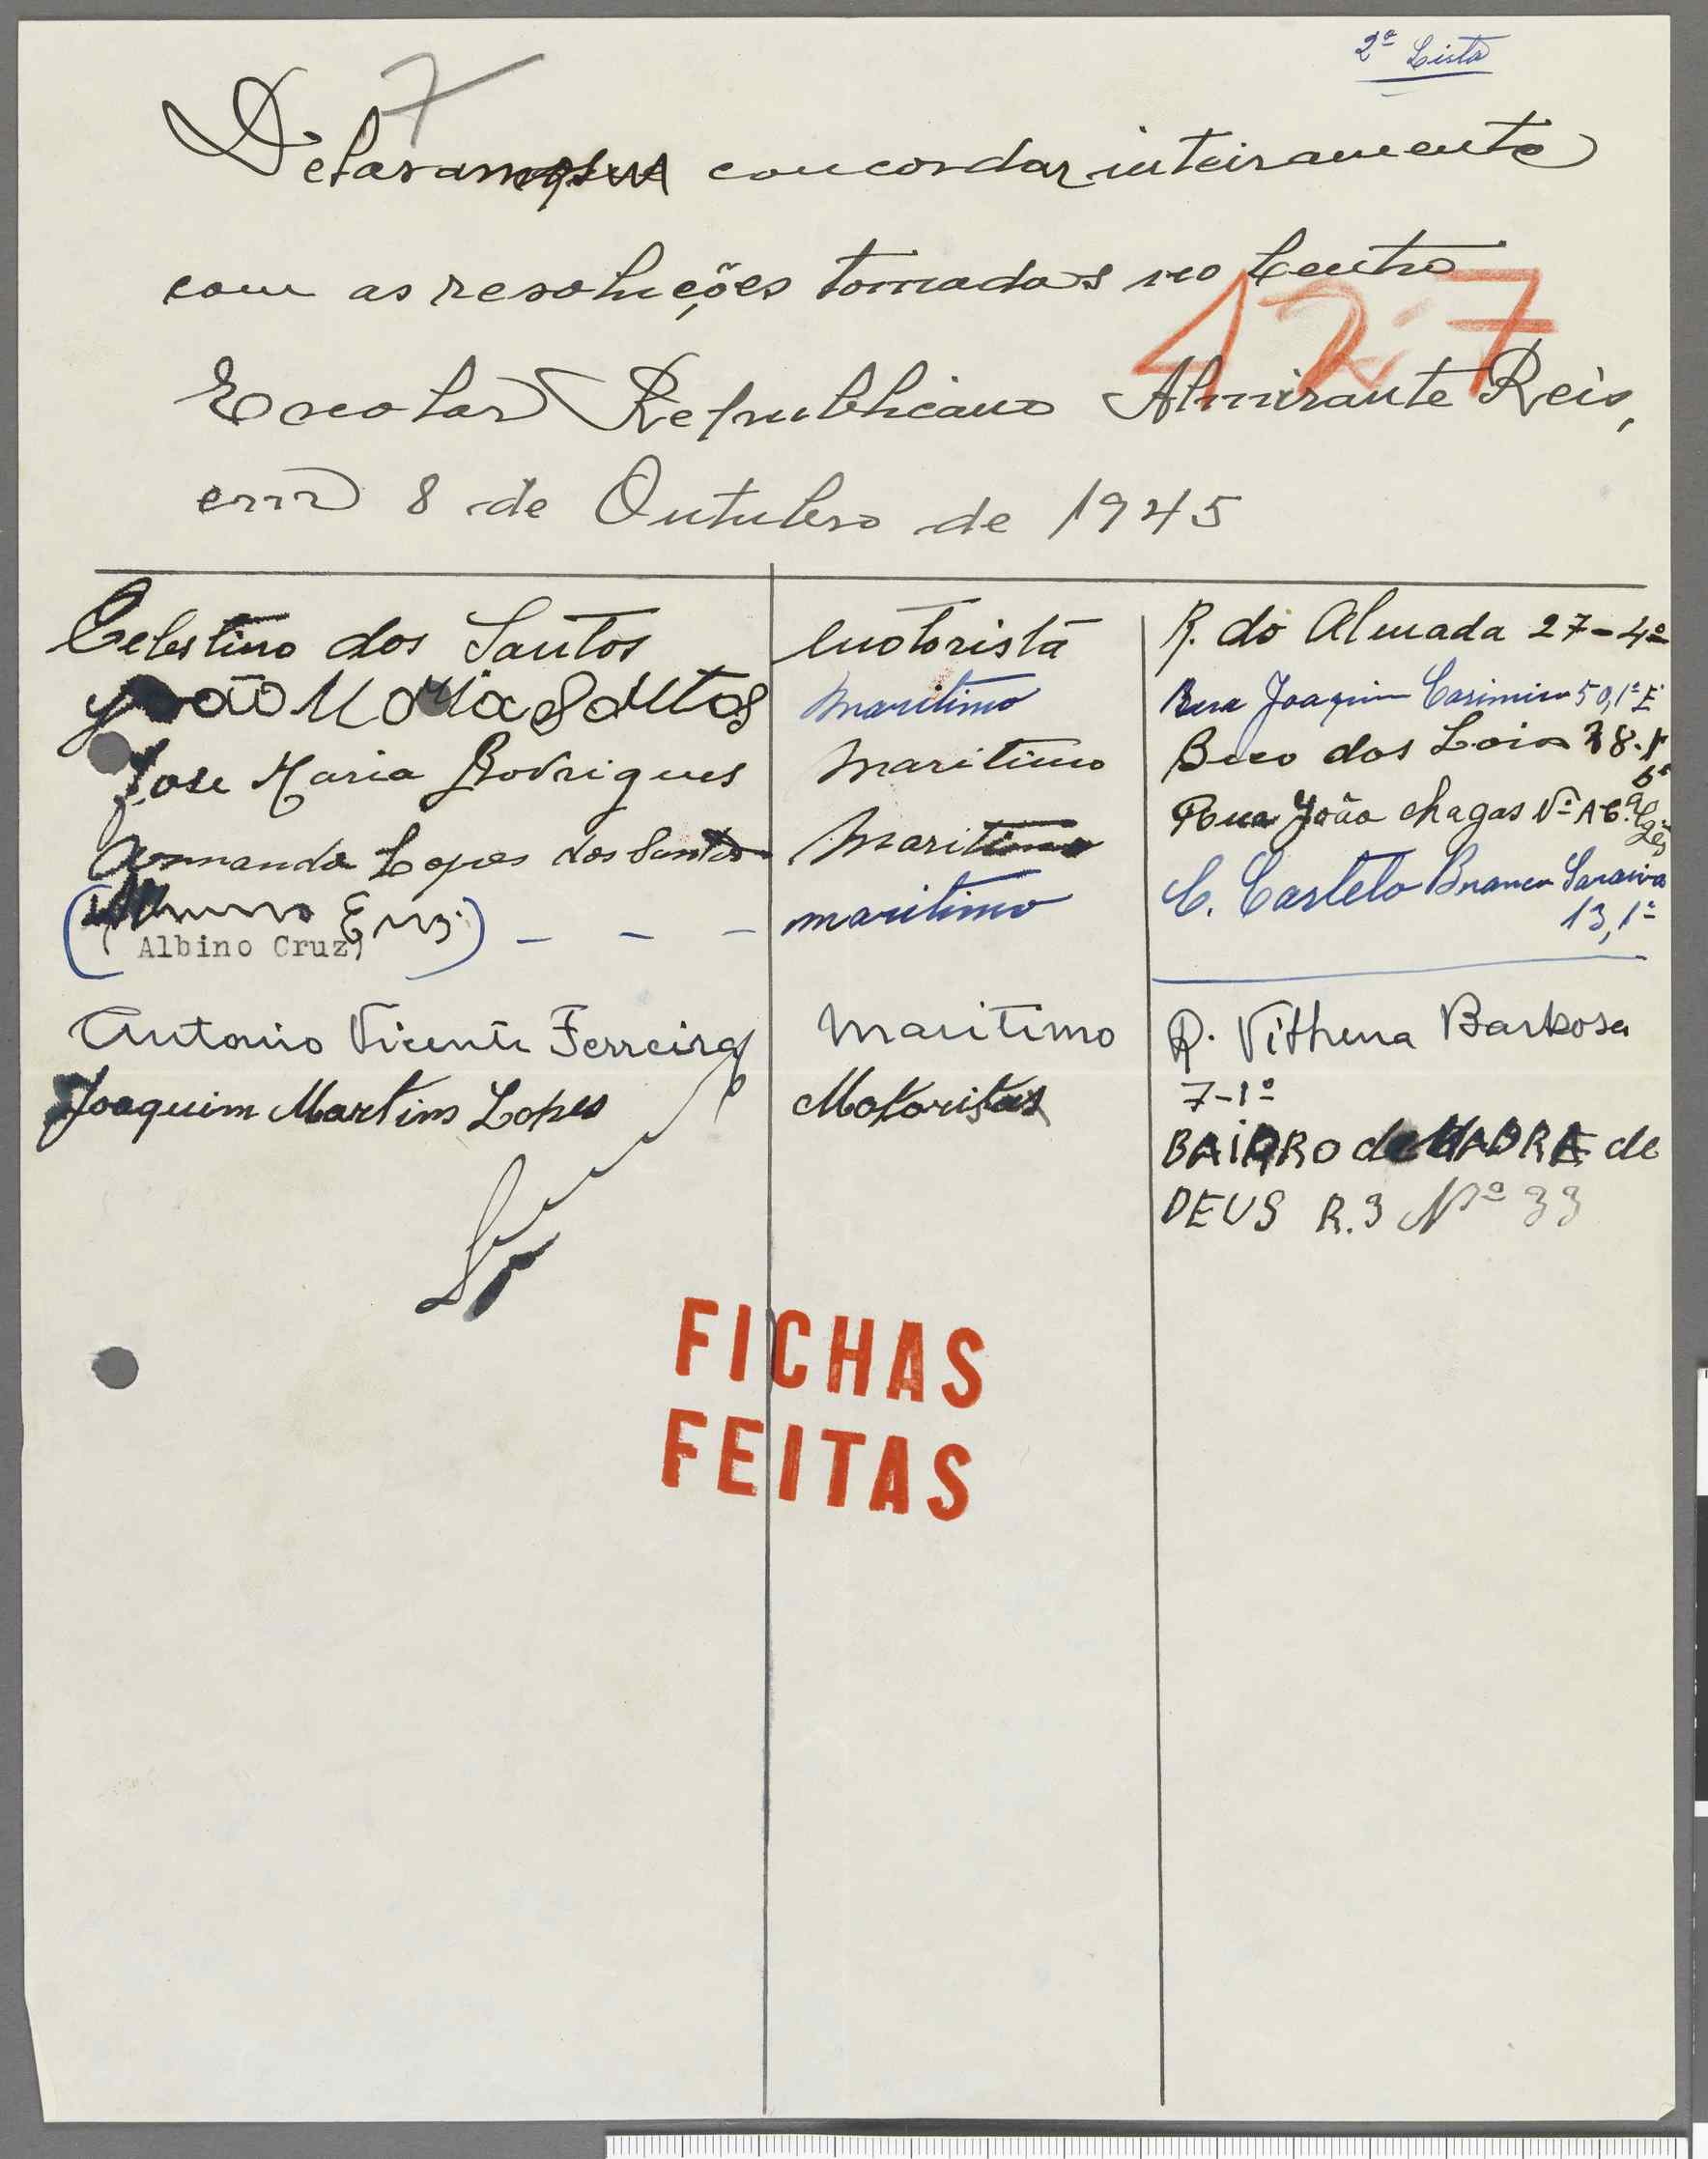 2ª Lista
7
concordar inteiramente
com as resoluções tomadas no Centro
427
Escolar Republicano Almirante Reis,
em 8 de Outubro de 1945
Celestino dos Santos motorista R. do Almada 27-4º
João Maria Santos maritimo Rua Joaquim Casimiro 50,1º E
Jose Maria Rodrigues maritimo Beco dos Lois 8-1º
Armando Lopes dos Santos Maritimo Rua João Chagas Nº A6
maritimo C. Castelo Branco Saraiva
Albino Cruz 13,1º
Antonio Vicente Ferreira Maritimo R. Vithena Barbosa
7-1º
Joaquim Martins Lopes Motoristas
BAIRRO de MADRE de
DEUS R.3 Nº 33
FICHAS
FEITAS